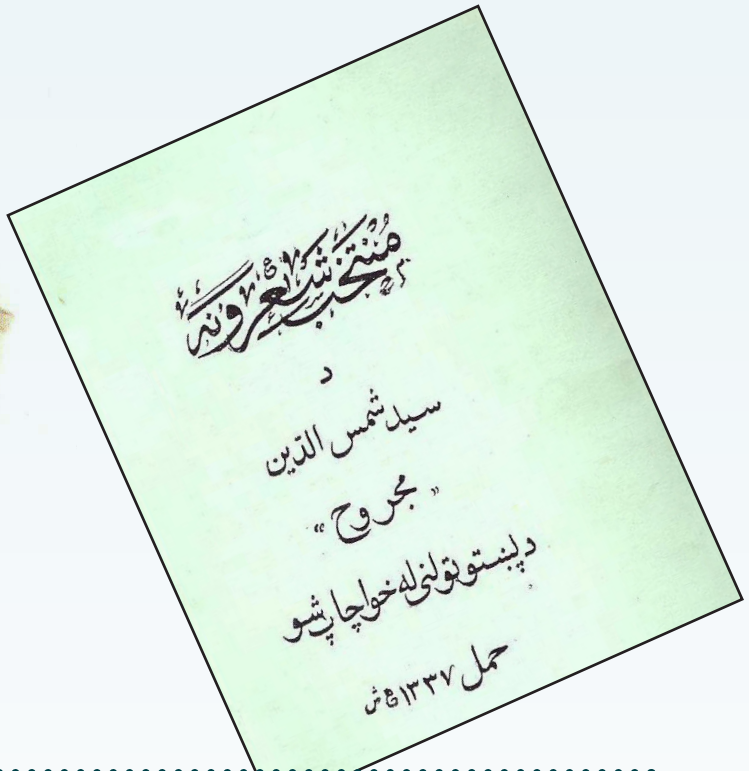 منتخب شعرونه
د
سید شمس الدّین
«مجروح»
د پښتو ټولنی له خوا چاپ شو
حمل ۱۳۳۷ ھ ش